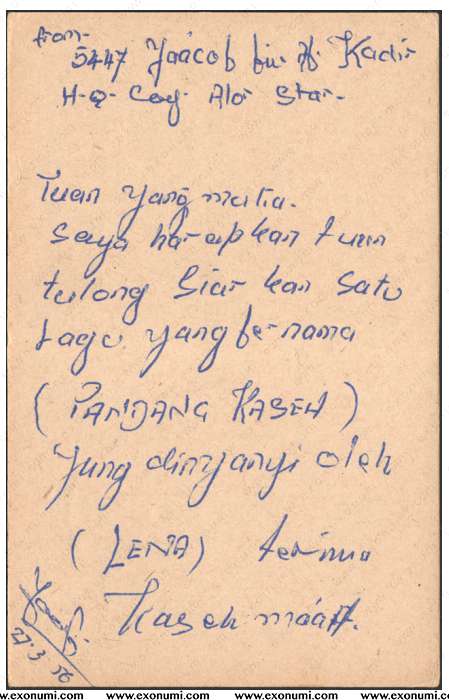 from-
5447 Yaácob bin H. Kadir
H-Q- Coy. Alor Star-
Tuan yang mulia.
Saya harapkan tuan
tulong siarkan satu
lagu yang bernama
(PANDANG KASEH)
Yang dinyanyi oleh
(LENA) terima
Kaseh máaf.
27.3.56
www.exonumi.com www.exonumi.com www.exonumi.com www.exonumi.com